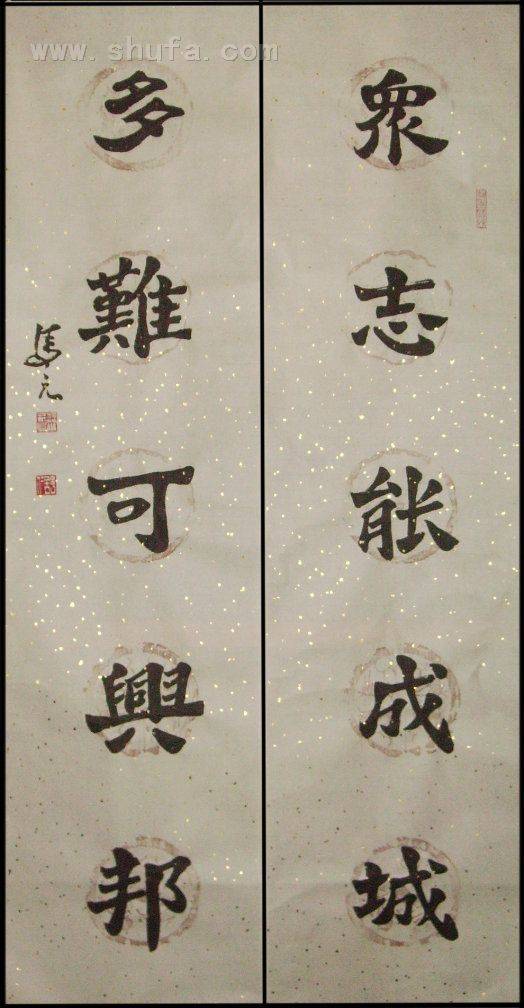 www.shufa.com
眾志能成城
多難可興邦